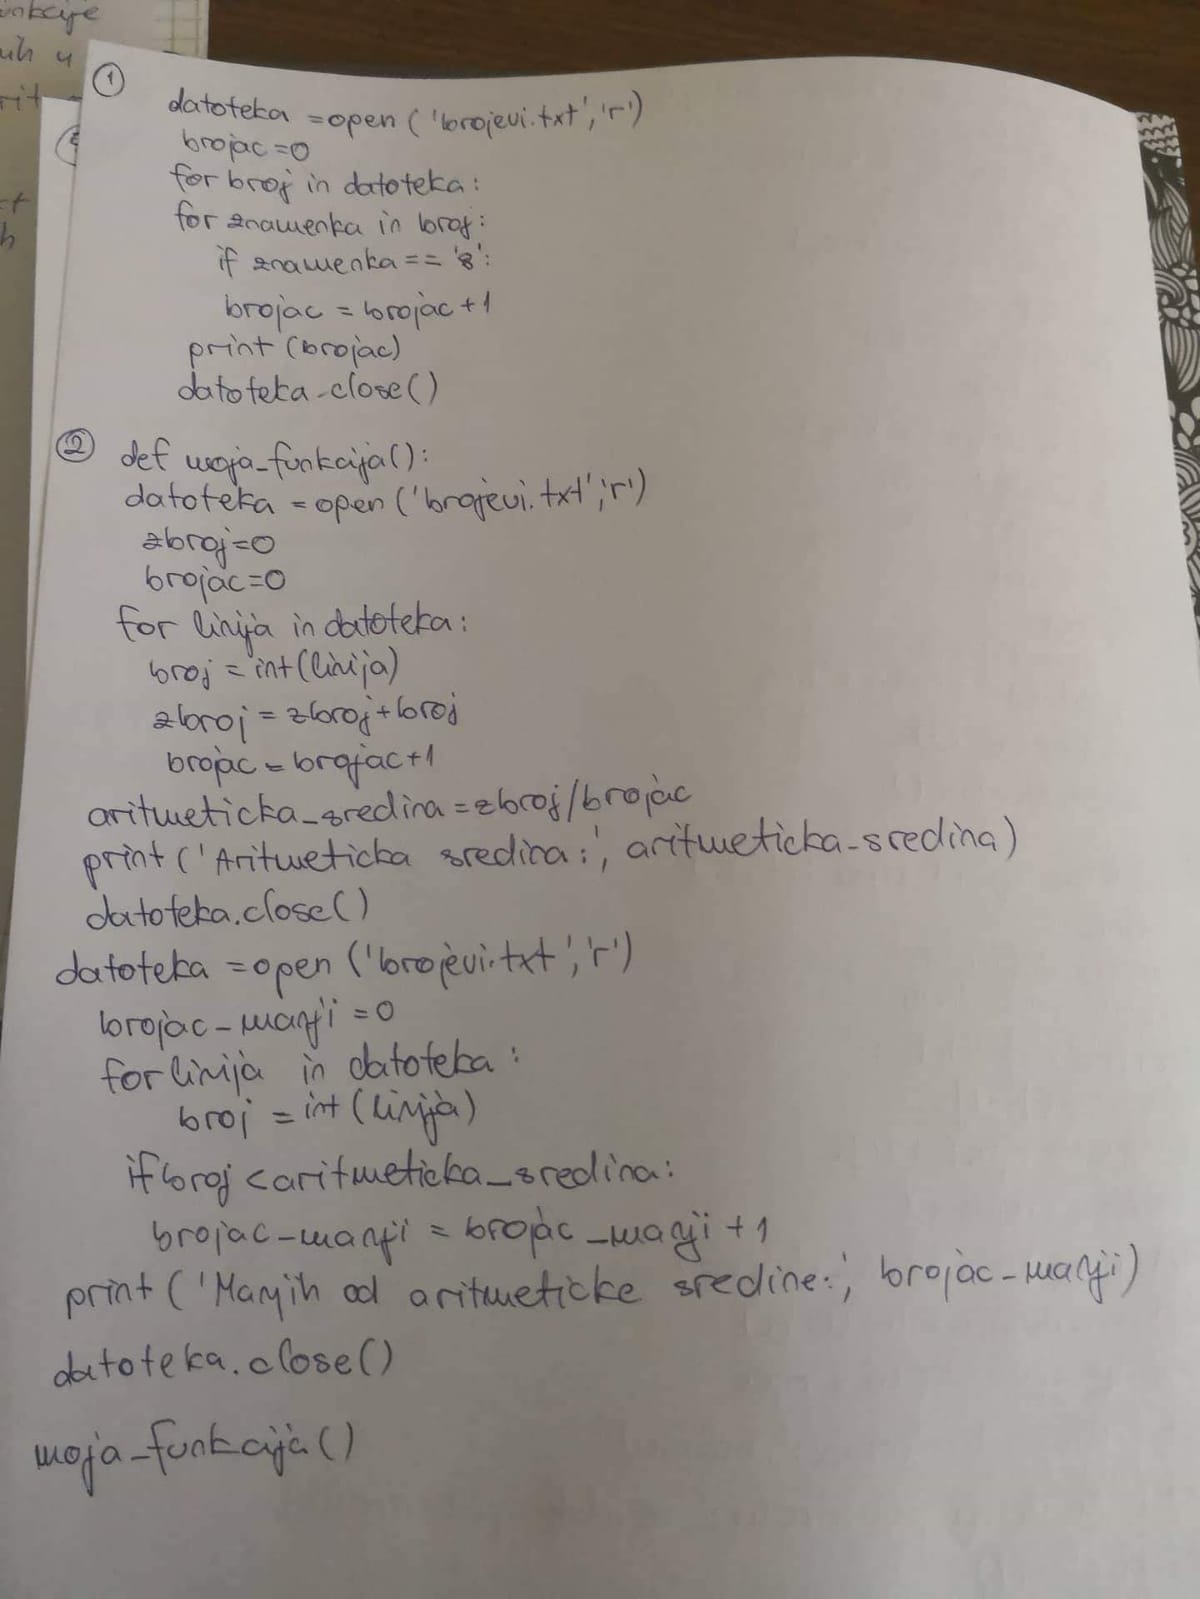 unkcije
uh u
rit
①
datoteka =open ('brojevi.txt','r')
brojac=0
for broj in datoteka:
for znamenka in broj:
if znamenka== '8':
brojac = brojac +1
print (brojac)
datoteka.close()
② def moja_funkcija():
datoteka =open ('brojevi.txt','r')
zbroj=0
brojac=0
for linija in datoteka:
broj = int(linija)
zbroj = zbroj+broj
brojac = brojac+1
aritmeticka_sredina=zbroj/brojac
print ('Aritmeticka sredina:', aritmeticka_sredina)
datoteka.close()
datoteka =open ('brojevi.txt','r')
brojac_manji =0
for linija in datoteka :
broj =int (linija)
if broj <aritmeticka_sredina:
brojac_manji = brojac_manji +1
print ('Manjih od aritmeticke sredine:', brojac_manji)
datoteka.close()
moja_funkcija()